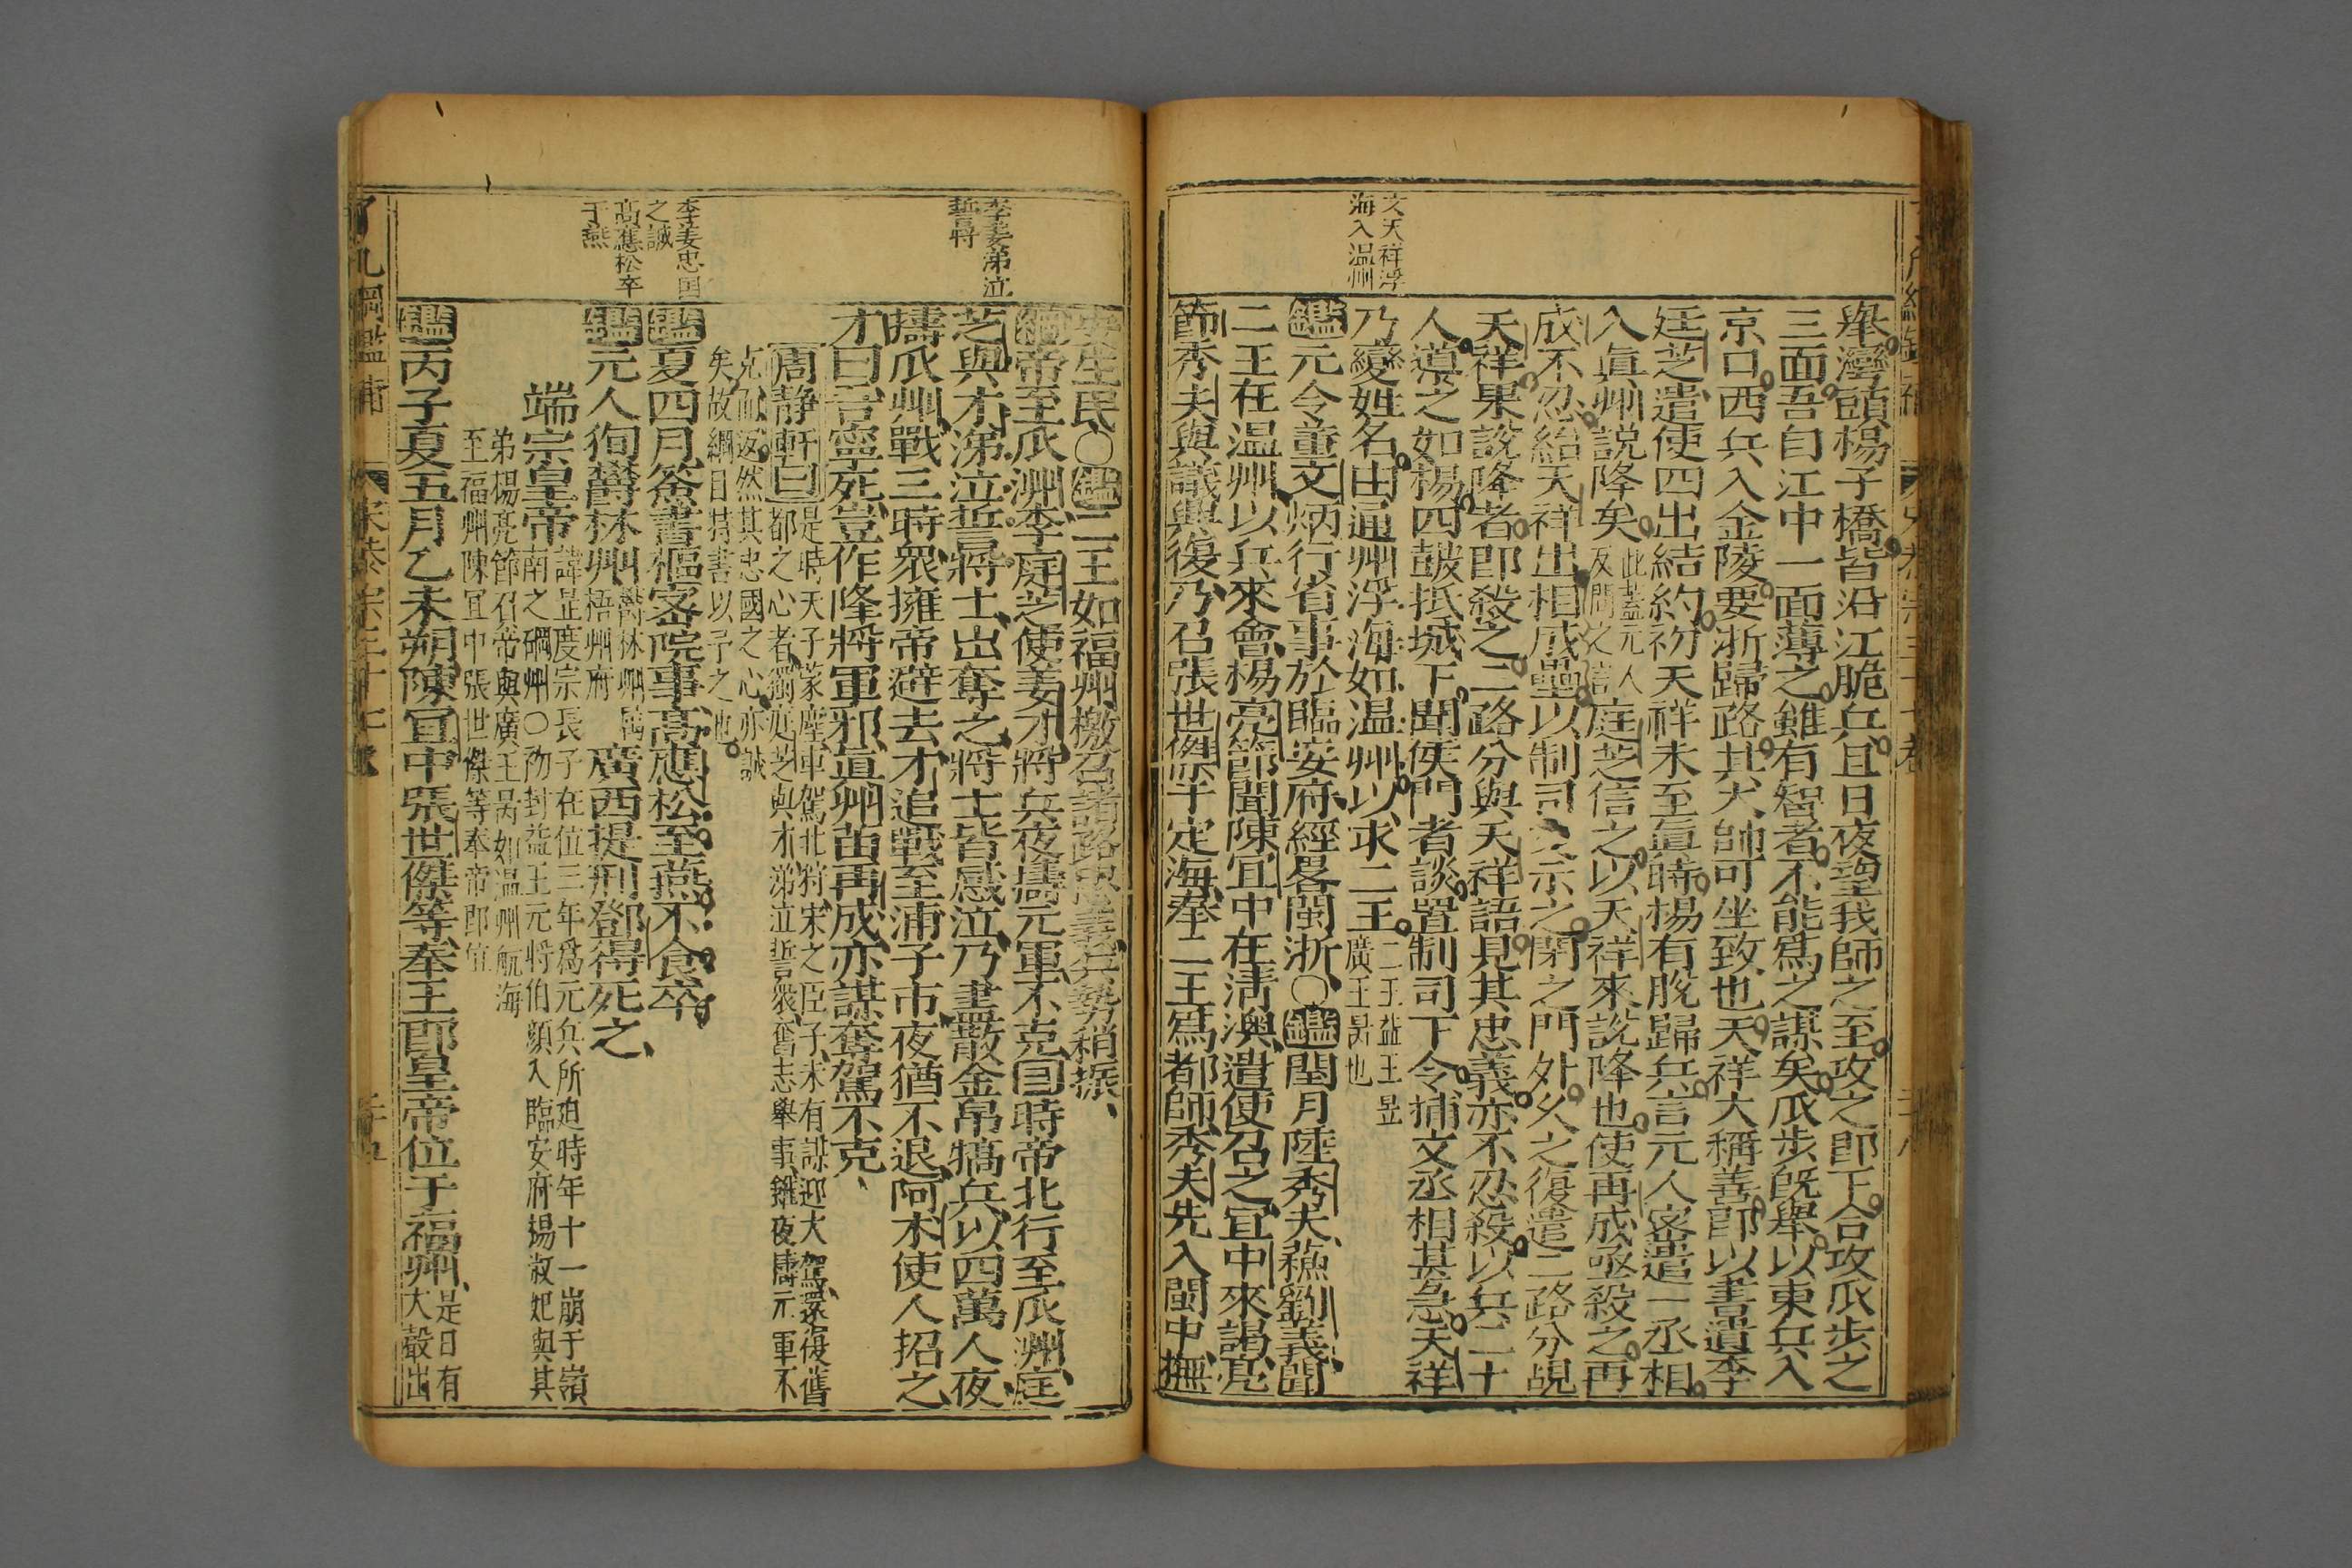 文天祥浮
海入温州
舉灣頭楊子橋皆沿江脆兵且日夜望我師之至攻之即下合攻瓜步之
三面吾自江中一面薄之雖有智者不能爲之謀矣瓜步旣舉以東兵入
京口西兵入金陵要浙歸路其大帥可坐致也天祥大稱善即以書遺李
廷芝遣使四出結約初天祥未至眞時楊有脫歸兵言元人密遣一丞相
入眞州説降矣
此蓋元人
反間之信
庭芝信之以天祥來說降也使再成亟殺之再
成不忍紿天祥出相城壘以制司文示之閉之門外久之復遣二路分覘
天祥果說降者即殺之二路分與天祥語見其忠義亦不忍殺以兵二十
人導之如楊四鼓抵城下聞候門者談置制司下令捕文丞相甚急天祥
乃變姓名由通州浮海如温州以求二王
二王益王昰
廣王昺也
鑑元令董文炳行省事於臨安府經畧閩浙○鑑閏月陸秀夫蘇劉義聞
二王在温州以兵來會楊亮節聞陳宜中在清澳遣使召之宜中來謁亮
節秀夫與議興復乃召張世傑于定海奉二王爲都師秀夫先入閩中撫
李姜弟泣
誓言將
李姜忠囯
之誠
高應松卒
于燕
安生民○鑑二王如福州檄召諸路忠義兵勢稍振
綱帝至瓜洲李庭芝使姜才將兵夜擣元軍不克目時帝北行至瓜洲庭
芝與才涕泣誓將士出奪之將士皆感泣乃盡散金帛犒兵以四萬人夜
擣瓜州戰三時衆擁帝避去才追戰至浦子市夜猶不退阿朮使人招之
才曰吾寧死豈作降將軍邪眞州苗再成亦謀奪駕不克
周静軒曰
是時天子蒙塵車駕北狩宋之臣子未有謀迎大駕還復舊
都之心者獨庭芝與才涕泣誓衆奮志舉事雖夜擣元軍不
克而返然其忠國之心亦誠
矣故綱目持書以予之也
鑑夏四月簽書樞密院事高應松至燕不食卒
鑑元人徇鬱林州
鬱林州屬
梧州府
廣西提刑鄧得死之
端宗皇帝
諱昰度宗長子在位三年爲元兵所廹時年十一崩于嶺
南之碙州○初封益王元將伯顔入臨安府楊淑妃與其
弟楊亮節召帝與廣王昺如温州航海
至福州陳宜中張世傑等奉帝即位
鑑丙子夏五月乙未朔陳宜中張世傑等奉王即皇帝位于福州
是日有
大聲出
了凡綱鑑補